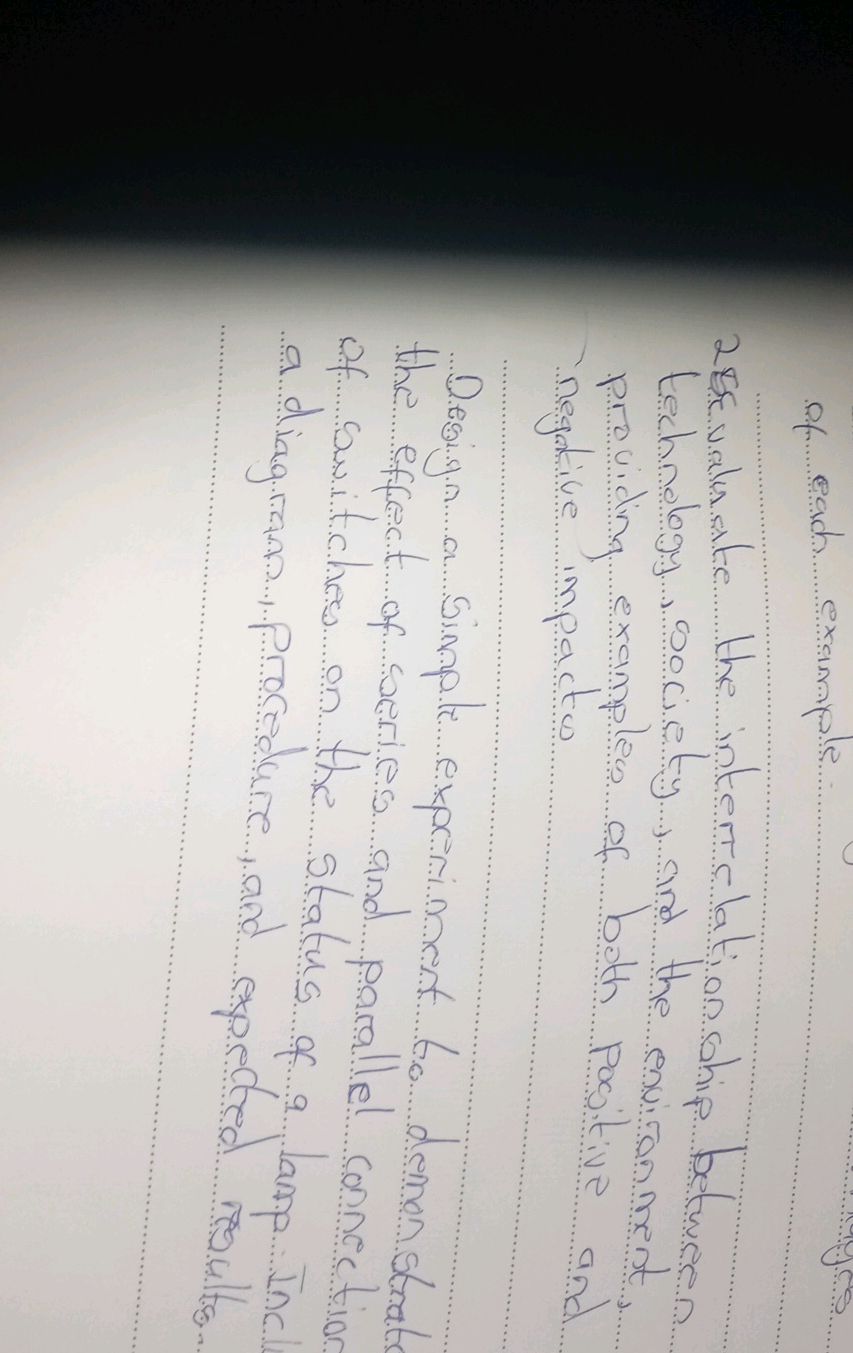 of each example.
2 Evaluate the interrelationship between
technology, society, and the environment,
providing examples of both positive and
negative impacts
Design a simple experiment to demonstrate
the effect of series and parallel connection
of switches on the status of a lamp. Incl
a diagram, procedure, and expected results.